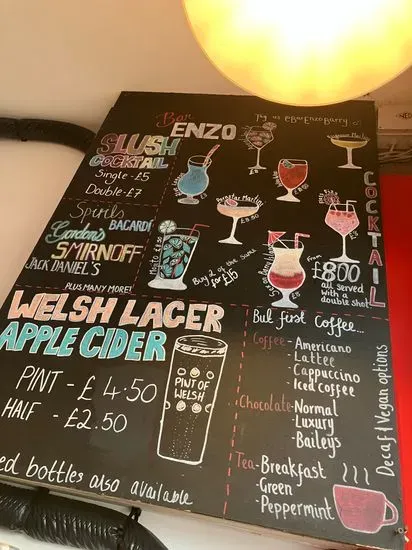 Bar
ENZO
Tag us @BarEnzoBarry
SLUSH
COCKTAIL
Single - £5
Double - £7
Spirits
BACARDI
Gordon's
SMIRNOFF
JACK DANIEL'S
PLUS MANY MORE!
Pornstar Martini
Mojito
Buy 2 of the Same
for £15
COCKTAIL
From
£8.00
all served
with a
double shot
WELSH LAGER
APPLE CIDER
PINT - £4.50
HALF - £2.50
PINT OF
WELSH
ed bottles also available
But first Coffee...
Coffee - Americano
- Lattee
- Cappuccino
- Iced Coffee
Chocolate - Normal
- Luxury
- Baileys
Tea - Breakfast
- Green
- Peppermint
Decaf | Vegan options